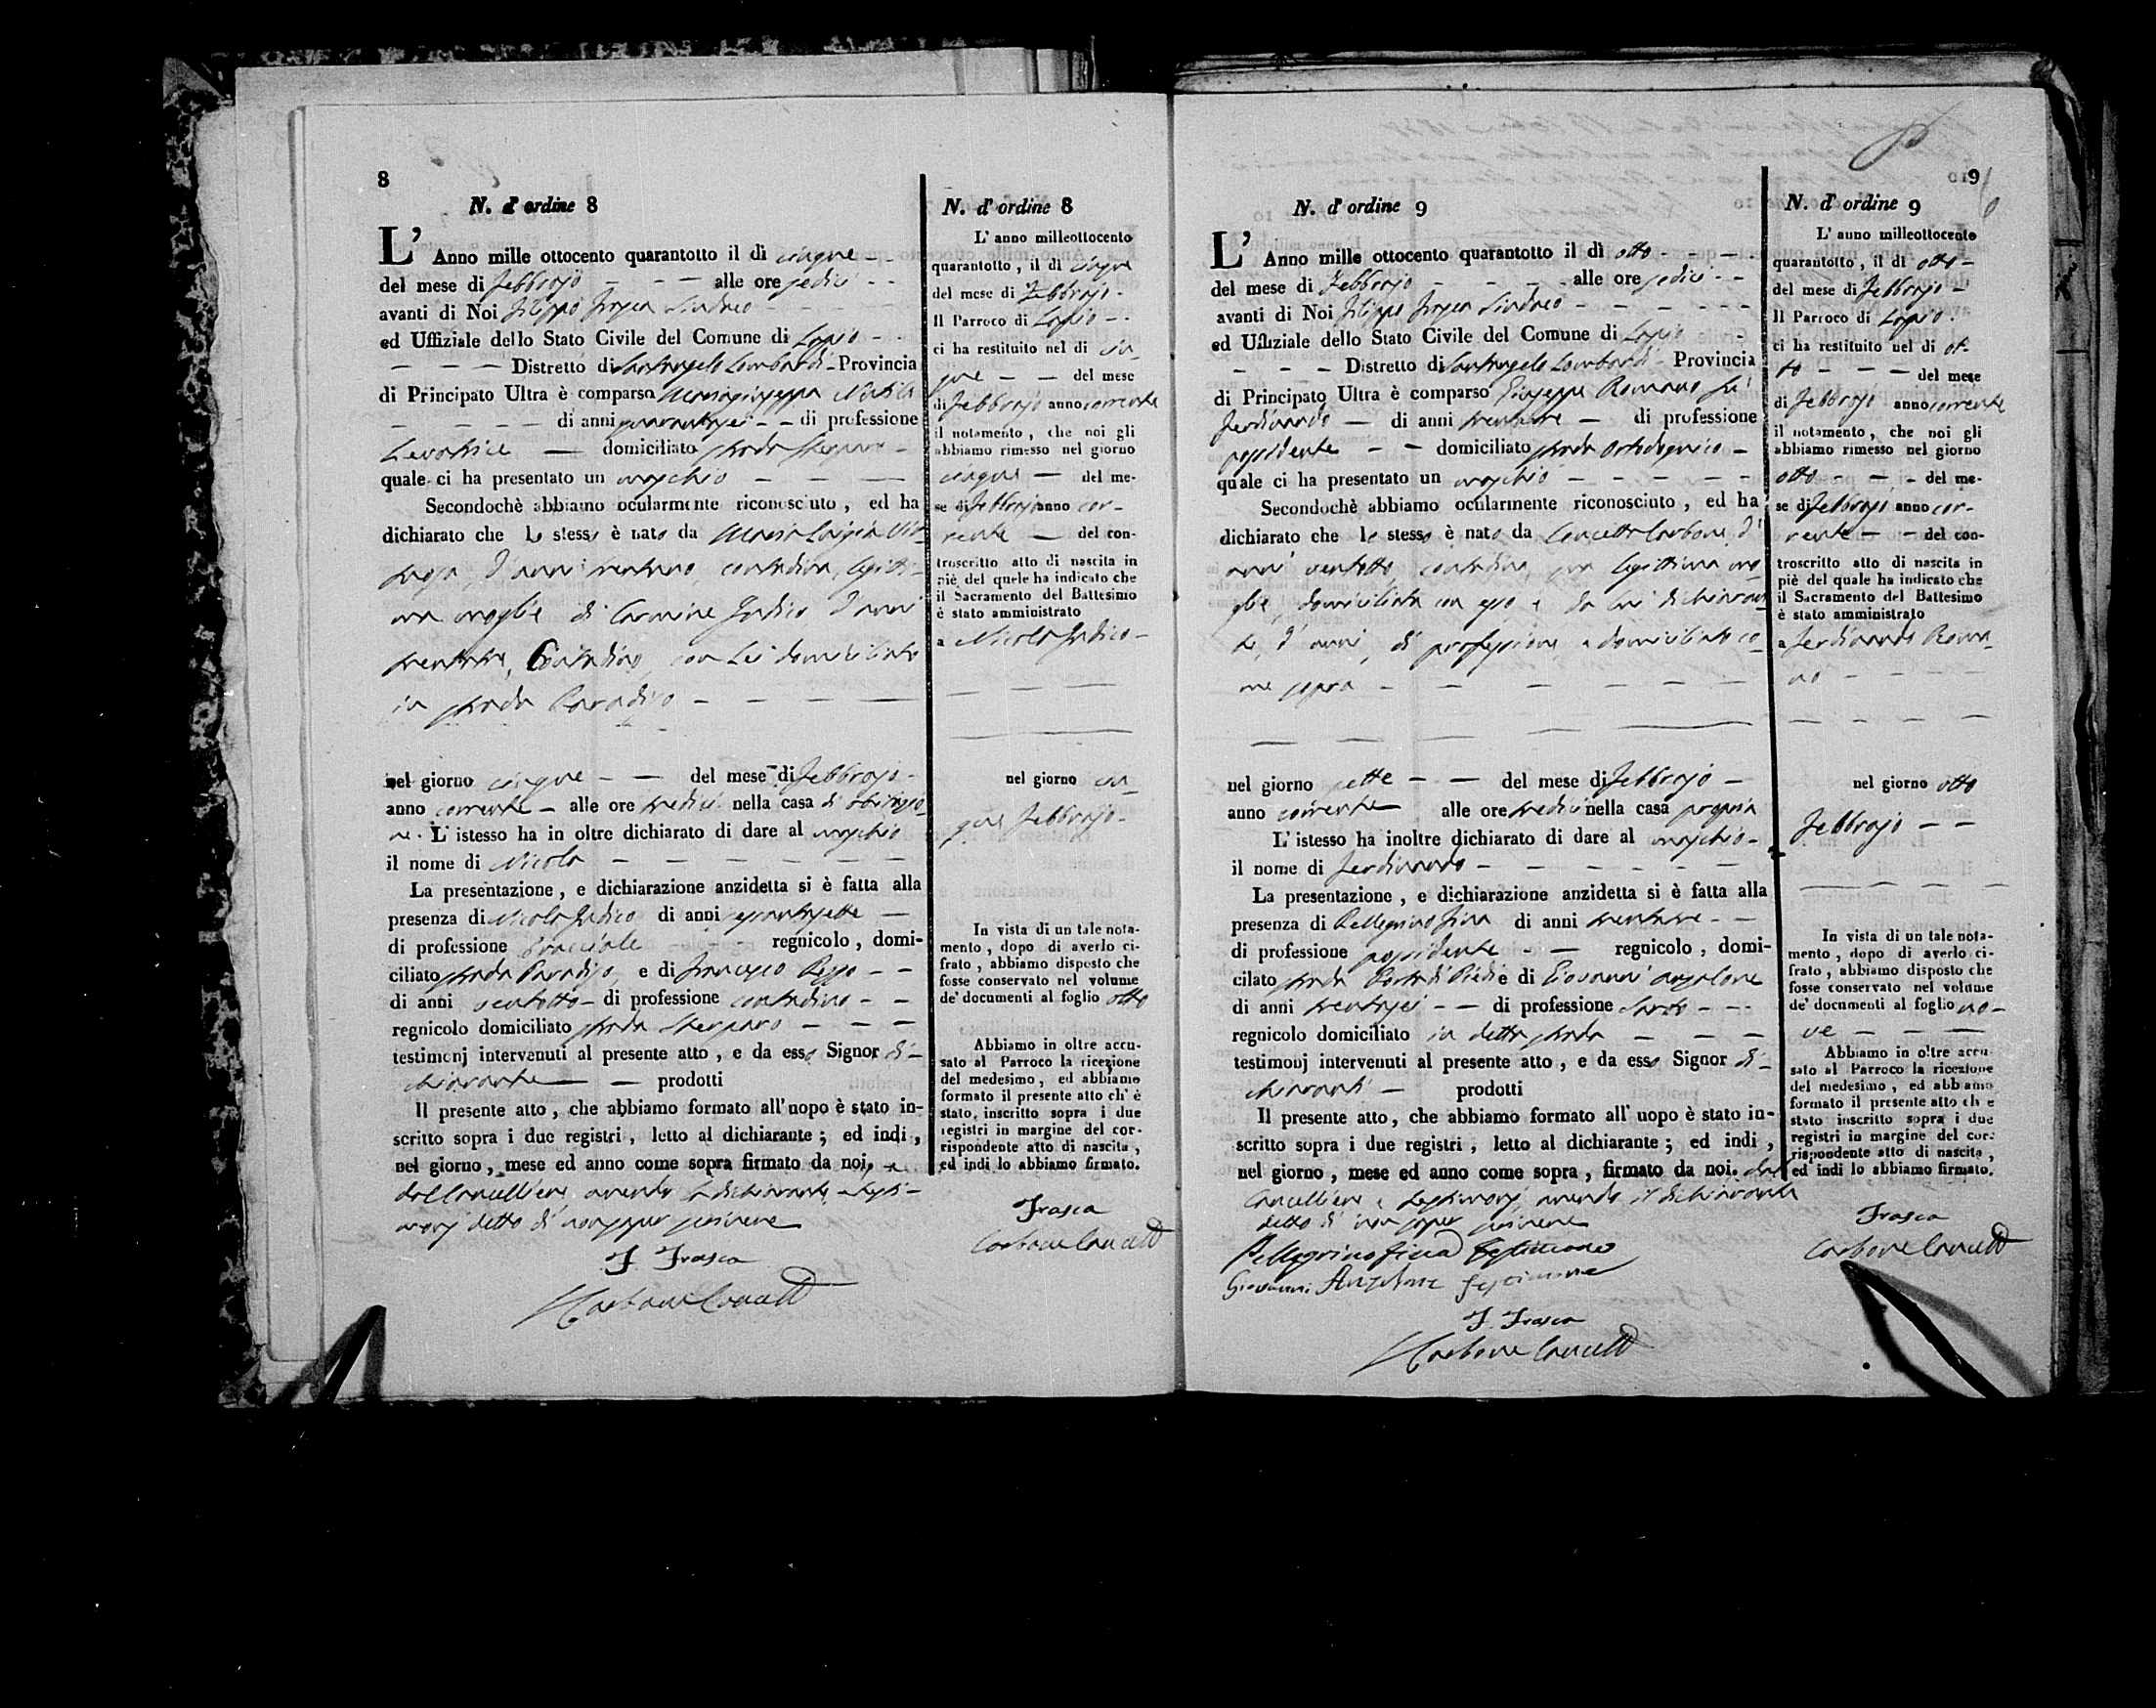 8
N. d' ordine 8
L' Anno mille ottocento quarantotto il di cinque
del mese di Febbrajo alle ore sedici
avanti di Noi Filippo Frasca Sindaco
ed Uffiziale dello Stato Civile del Comune di Lapio
Distretto di Santangelo Lombardi Provincia
di Principato Ultra è comparsa Mariagiuseppa
di anni quarantasei di professione
Levatrice domiciliato strada
quale ci ha presentato un maschio
Secondochè abbiamo ocularmente riconosciuto, ed ha
dichiarato che lo stesso è nato da Maria Luigia
d'anni trentuno, contadina, legitti-
ma moglie di Carmine Jodico d'anni
trentatre, Contadino, con Lei domiciliato
in strada Paradiso
nel giorno cinque del mese di Febbrajo
anno corrente alle ore tredici nella casa di abitazio-
ne. L' istesso ha in oltre dichiarato di dare al maschio
il nome di Nicola
La presentazione, e dichiarazione anzidetta si è fatta alla
presenza di Nicola Jodico di anni sessantasette
di professione bracciale regnicolo, domi-
ciliato strada Paradiso e di Francesco
di anni ventotto di professione contadino
regnicolo domiciliato strada
testimonj intervenuti al presente atto, e da esso Signor di-
chiarante prodotti
Il presente atto, che abbiamo formato all'uopo è stato in-
scritto sopra i due registri, letto al dichiarante; ed indi,
nel giorno, mese ed anno come sopra firmato da noi, e
dal Cancelliere, avendo la dichiarante e testi-
monj detto di non saper scrivere
F. Frasca
Carbone Cancell
N. d' ordine 8
L' anno milleottocento
quarantotto, il di cinque
del mese di Febbrajo
Il Parroco di Lapio
ci ha restituito nel di cin-
que del mese
di Febbrajo anno corrente
il notamento, che noi gli
abbiamo rimesso nel giorno
cinque del me-
se di Febbrajo anno cor-
rente del con-
troscritto atto di nascita in
piè del quele ha indicato che
il Sacramento del Battesimo
è stato amministrato
a Nicola Jodico
nel giorno cin-
que Febbrajo
In vista di un tale nota-
mento, dopo di averlo ci-
frato, abbiamo disposto che
fosse conservato nel volume
de' documenti al foglio otto
Abbiamo in oltre accu-
sato al Parroco la ricezione
del medesimo, ed abbiamo
formato il presente atto ch' è
stato inscritto sopra i due
registri in margine del cor-
rispondente atto di nascita,
ed indi lo abbiamo firmato.
Frasca
Carbone Cancell
9
N. d' ordine 9
L' Anno mille ottocento quarantotto il dì otto
del mese di Febbrajo alle ore sedici
avanti di Noi Filippo Frasca Sindaco
ed Uffiziale dello Stato Civile del Comune di Lapio
Distretto di Santangelo Lombardi Provincia
di Principato Ultra è comparso Giuseppe Romano fu
Ferdinando di anni trentatre di professione
possidente domiciliato strada
quale ci ha presentato un maschio
Secondochè abbiamo ocularmente riconosciuto, ed ha
dichiarato che lo stesso è nato da Concetta Carbone, d'
anni ventotto, contadina, sua legittima mo-
glie, domiciliata con esso e da lui dichiaran-
te, d'anni, di professione e domiciliato co-
me sopra
nel giorno sette del mese di Febbrajo
anno corrente alle ore tredici nella casa propria
L' istesso ha inoltre dichiarato di dare al maschio
il nome di Ferdinando
La presentazione, e dichiarazione anzidetta si è fatta alla
presenza di Pellegrino Fina di anni trentatre
di professione possidente regnicolo, domi-
cilato strada Porta di Piedi e di Giovanni Anzalone
di anni trentasei di professione Sarto
regnicolo domiciliato in detta strada
testimonj intervenuti al presente atto, e da esso Signor di-
chiarante prodotti
Il presente atto, che abbiamo formato all' uopo è stato in-
scritto sopra i due registri, letto al dichiarante; ed indi,
nel giorno, mese ed anno come sopra, firmato da noi. dal
Cancelliere e testimonj, avendo il dichiarante
detto di non saper scrivere
Pellegrino Fina testimone
Giovanni Anzalone testimone
F. Frasca
Carbone Cancell
N. d' ordine 9
L' anno milleottocento
quarantotto, il di otto
del mese di Febbrajo
Il Parroco di Lapio
ci ha restituito nel di ot-
to del mese
di Febbrajo anno corrente
il notamento, che noi gli
abbiamo rimesso nel giorno
otto del me-
se di Febbrajo anno cor-
rente del con-
troscritto atto di nascita in
piè del quale ha indicato che
il Sacramento del Battesimo
è stato amministrato
a Ferdinando Roma-
no
nel giorno otto
Febbrajo
In vista di un tale nota-
mento, dopo di averlo ci-
frato, abbiamo disposto che
fosse conservato nel volume
de' documenti al foglio no-
ve
Abbiamo in oltre accu-
sato al Parroco la ricezione
del medesimo, ed abbiamo
formato il presente atto ch è
stato inscritto sopra i due
registri in margine del cor-
rispondente atto di nascita,
ed indi lo abbiamo firmato.
Frasca
Carbone Cancell